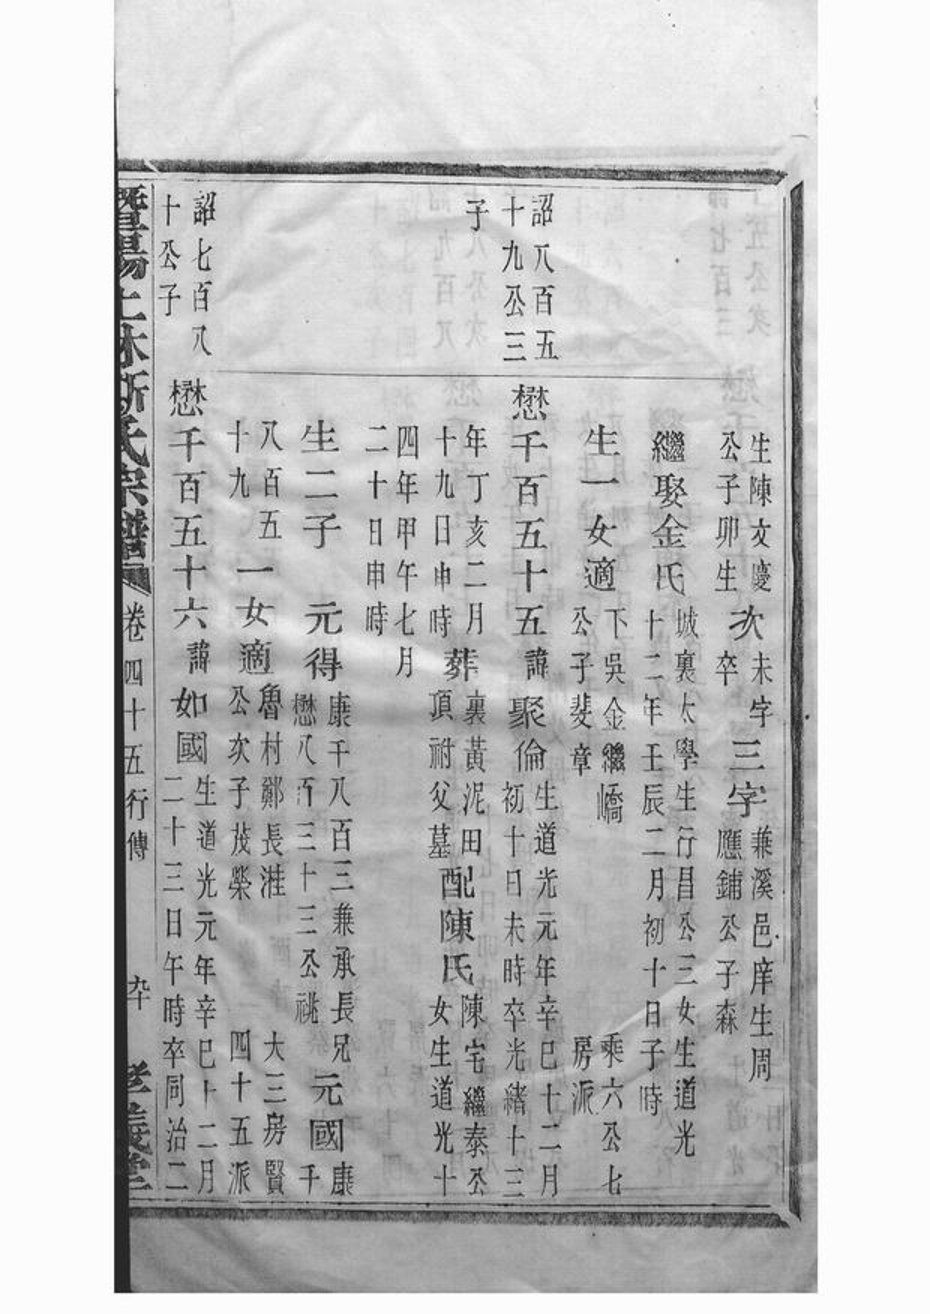 生陳文慶
公子卯生
次
未字
卒
三字
蕪溪邑庠生周
應鋪公子森
繼娶金氏
城裏太學生行昌公三女生道光
十二年壬辰二月初十日子時
生一女適
下吳金繼嶠
公子斐章
乘六公七
房派
詔八百五
十九公三
子
懋千百五十五諱聚倫
生道光元年辛巳十二月
初十日未時卒光緒十三
年丁亥二月
十九日申時
葬
裏黃泥田
頂祔父墓
配陳氏
陳宅繼泰公
女生道光十
四年甲午七月
二十日申時
生二子
元得
康千八百三兼承長兄
懋八百三十三公祧
元國
康千
八百五
十九
一女適
魯村鄭長淮
公次子茂榮
大三房賢
四十五派
詔七百八
十公子
懋千百五十六諱如國
生道光元年辛巳十二月
二十三日午時卒同治二
暨陽上林斯氏宗譜
卷四十五行傳
孝義堂